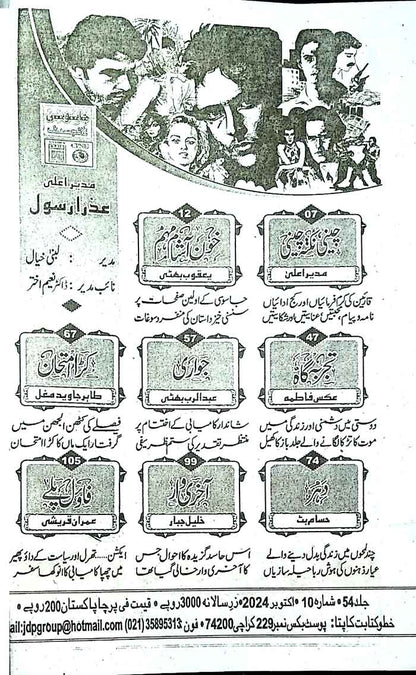 جاسوسی
ڈائجسٹ
مدیر اعلیٰ
عذرا رسول
مدیر : لبنیٰ خیال
نائب مدیر : ڈاکٹر نعیم اختر
07
چینی نکتہ چینی
مدیر اعلیٰ
12
خون آشنا مہم
یعقوب بھٹی
جاسوسی کے اولین صفحات پر
سنسنی خیز داستان کی منفرد سوغات
47
تجربہ گاہ
عکس فاطمہ
دوستی میں دشمنی اور زندگی میں
موت کا تڑکا لگانے والے جلد باز کا کھیل
57
جواری
عبدالرب بھٹی
شاندار کامیابی کے اختتام پر
منتظر تقدیر کی ستم ظریفی
67
کڑا امتحان
طاہر جاوید مغل
فیصلے کی کٹھن الجھن میں
گرفتار ایک ماں کا کڑا امتحان
74
دہرا
حسام بٹ
چند لمحوں میں زندگی بدل دینے والے
عیار ذہنوں کی ہوش ربا حیلہ سازیاں
99
آخری وار
خلیل جبار
اس حاسد گزیدہ کا احوال جس
کا آخری وار خالی گیا تھا
105
فاؤل پلے
عمران قریشی
ایکشن... تھرل اور سیاست کے داؤ پھیر
میں چھپا کامیابی کا انوکھا سفر
جلد 54 • شمارہ 10 • اکتوبر 2024 • زرِ سالانہ 3000 روپے • قیمت فی پرچا پاکستان 200 روپے •
خط و کتابت کا پتا: پوسٹ بکس نمبر 229 کراچی 74200 • فون: 35895313 (021) ail:jdpgroup@hotmail.com